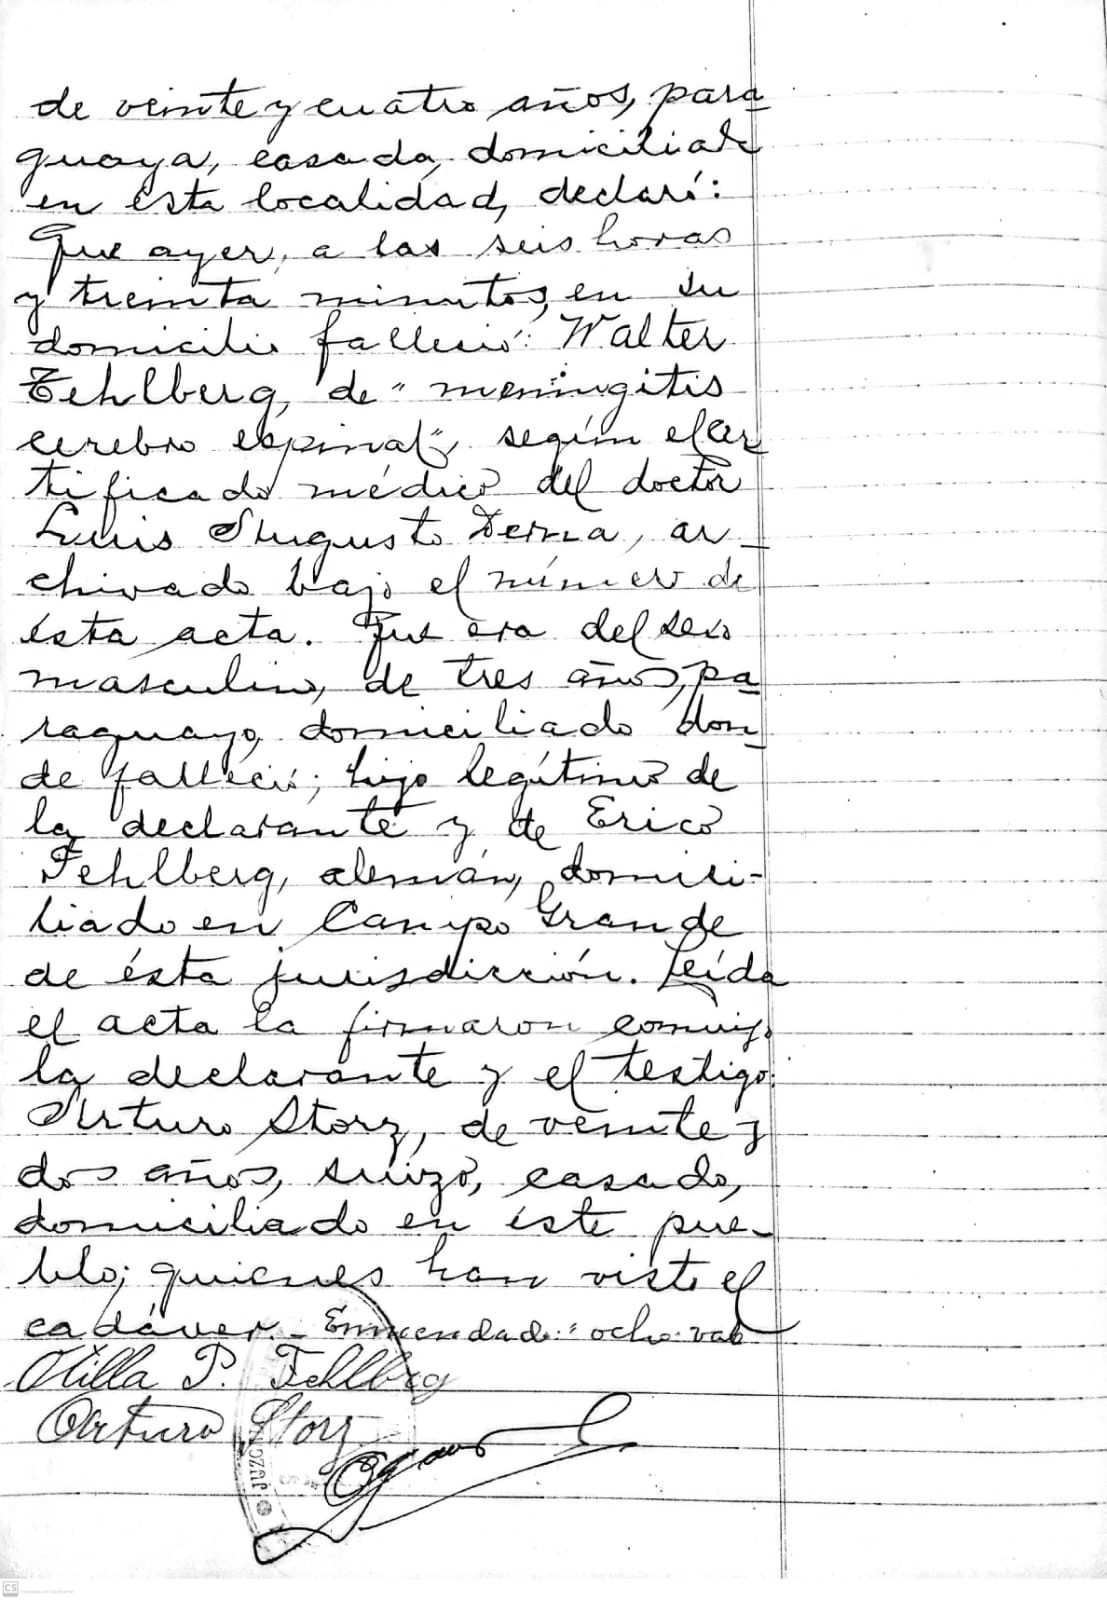 de veinte y cuatro años, para
guaya, casada, domiciliada
en esta localidad, declaró:
Que ayer, a las seis horas
y treinta minutos, en su
domicilio falleció: Walter
Fehlberg, de "meningitis
cerebro espinal", según el cer
tificado médico del doctor
Luis Augusto, ar-
chivado bajo el número de
ésta acta. Que era del sexo
masculino, de tres años, pa
raguayo, domiciliado don
de falleció; hijo legítimo de
la declarante y de Erico
Fehlberg, alemán, domici-
liado en Campo Grande
de ésta jurisdicción. Leída
el acta la firmaron conmigo
la declarante y el testigo:
Arturo Storz, de veinte y
dos años, suizo, casado,
domiciliado en éste pue-
blo; quienes han visto el
cadáver. - Enmendado: "ocho: vale
Otilla P. Fehlberg
Arturo Storz
JUZGA
CS